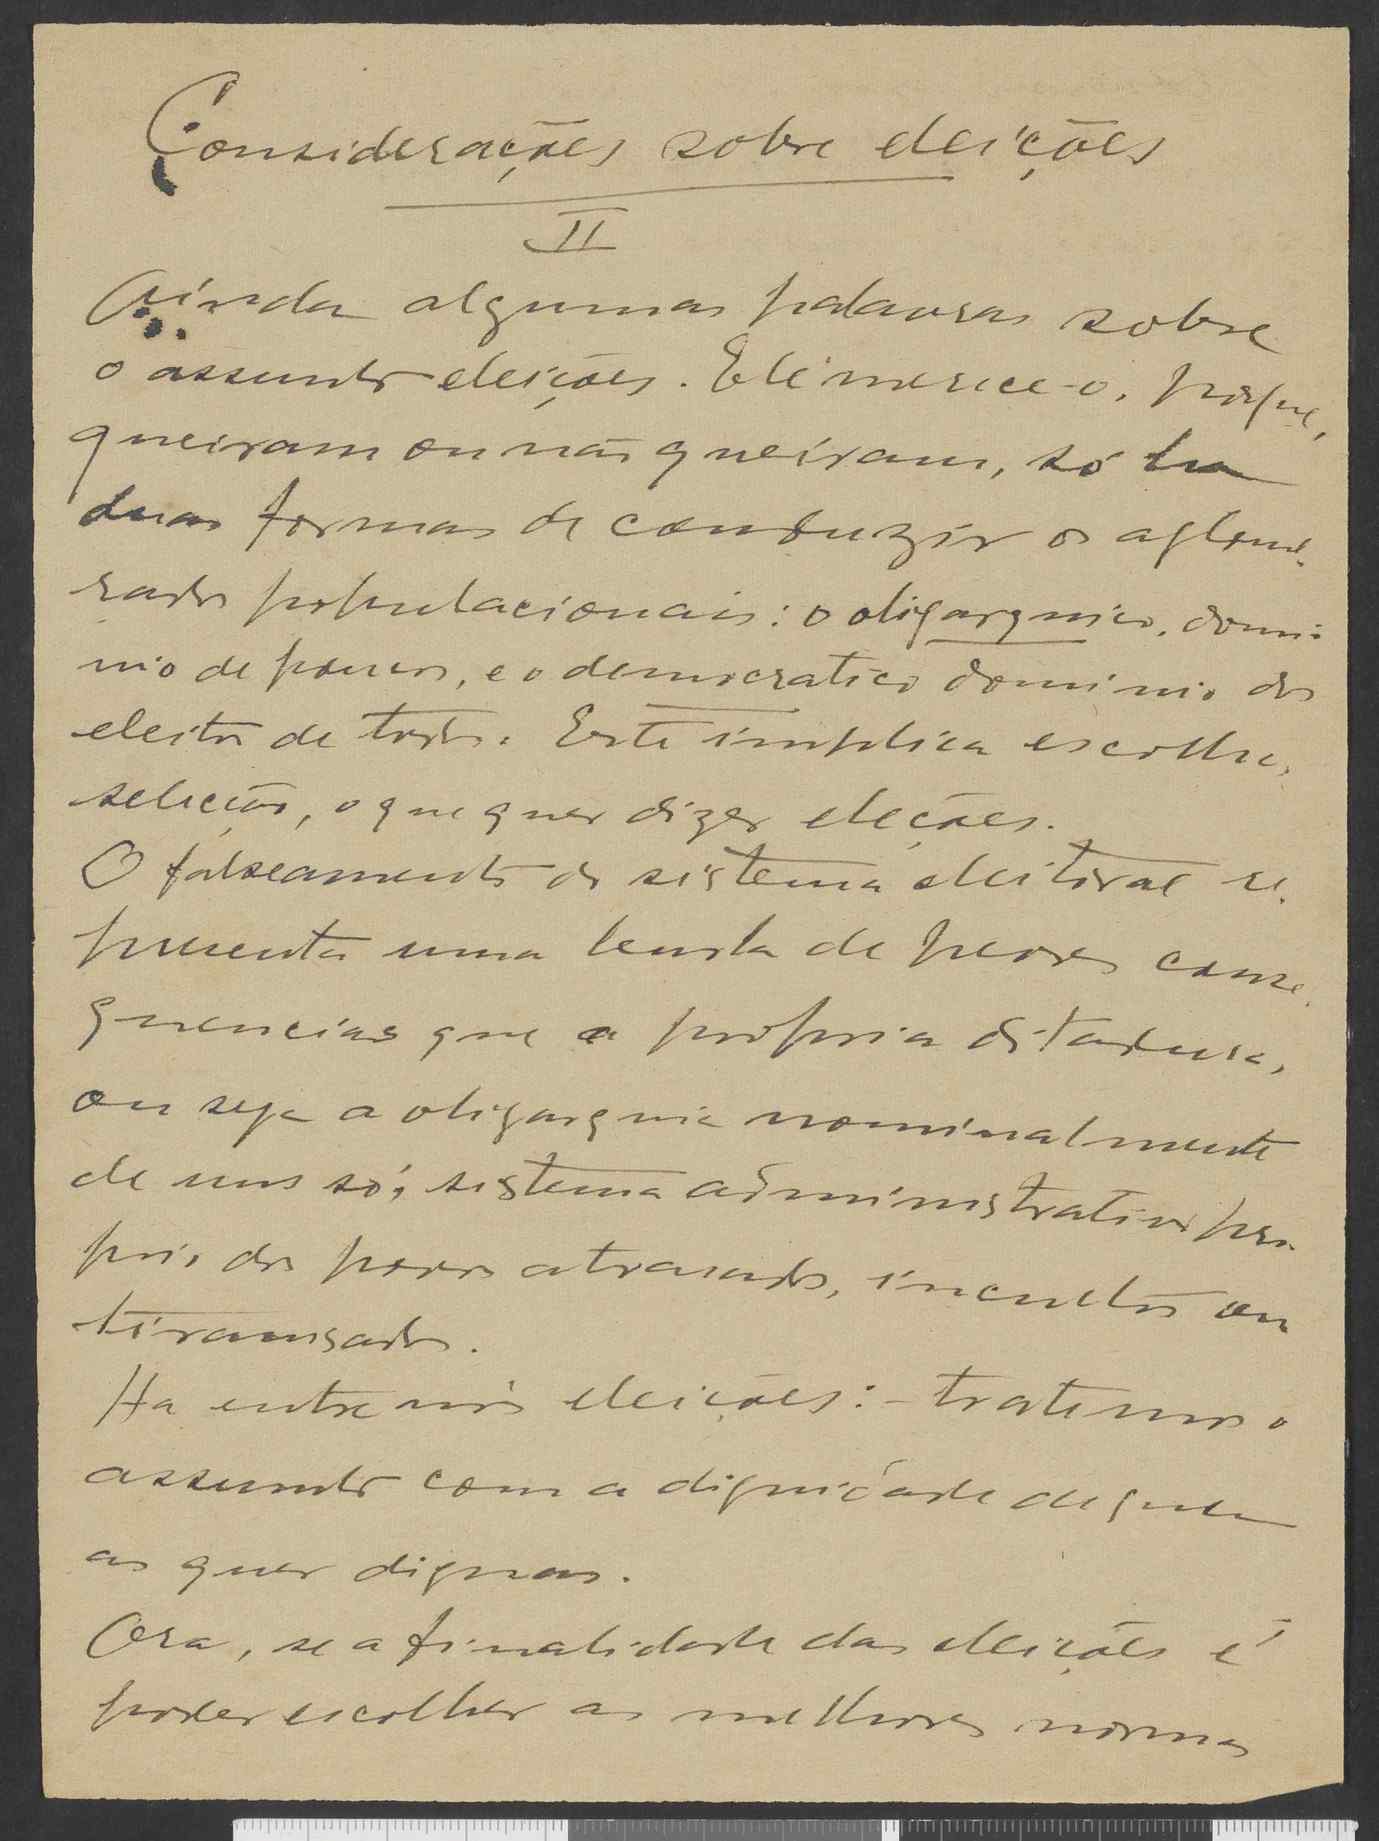 Considerações sobre eleições
II
Ainda algumas palavras sobre
o assunto eleições. Ele merece-o, porque,
queiram ou não queiram, só ha
duas formas de conduzir os aglome-
rados populacionais: o oligarquico, domi-
nio de poucos, e o democratico dominio dos
eleitos de todos. Este implica escolha,
selecção, o que quer dizer eleções.
O falseamento do sistema eleitoral re-
presenta uma burla de peores conse-
quencias que a propria ditadura,
ou seja a oligarquia nominalmente
de um só, sistema administrativo pro-
prio dos povos atrasados, incultos ou
tiranisados.
Ha entre nós eleições: - tratemos o
assunto com a dignidade de quem
as quer dignas.
Ora, se a finalidade das eleições é
poder escolher as melhores normas